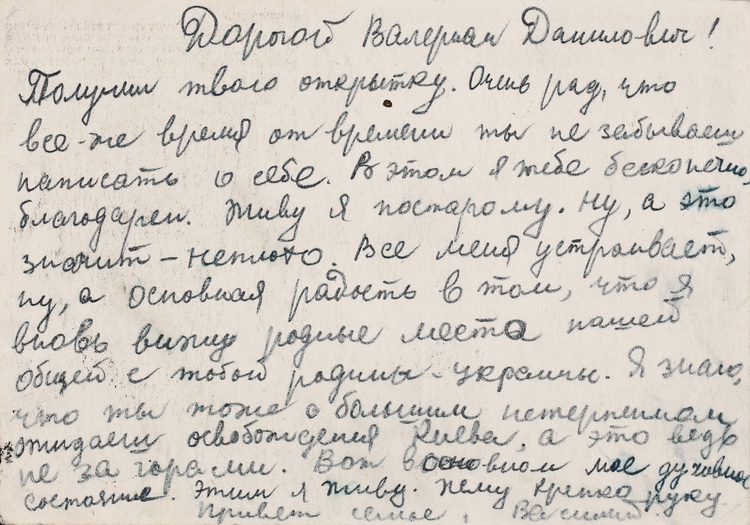 Дорогой Валериан Данилович!
Получил твою открытку. Очень рад, что
все-же время от времени ты не забываеш
написать о себе. В этом я тебе бесконечно
благодарен. Живу я постарому. Ну, а это
значит - неплохо. Все меня устраивает,
ну, а основная радость в том, что я
вновь вижу родные места нашей
общей с тобой родины - украины. Я знаю,
что ты тоже с большим нетерпением
ожидаеш освобождения Киева, а это ведь
не за горами. Вот в основном мое духовное
состояние. Этим я живу. Жму крепко руку.
Привет семье. Василий.